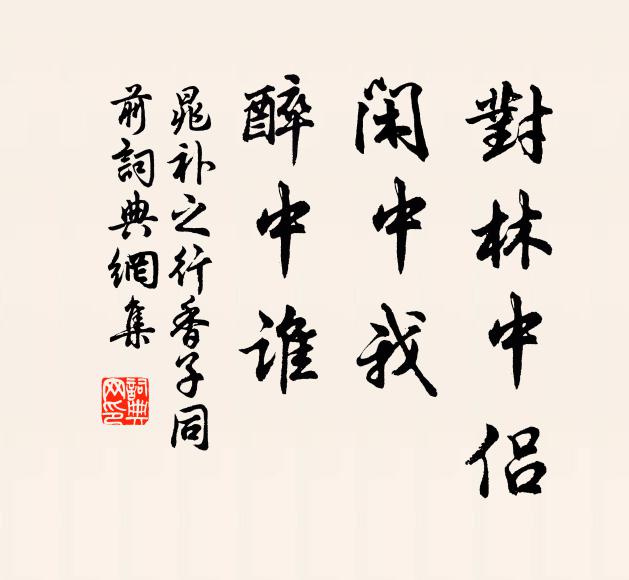 對林中侶
閑中我
醉中誰
晁补之行香子同
前詞典網集
詞典
网印